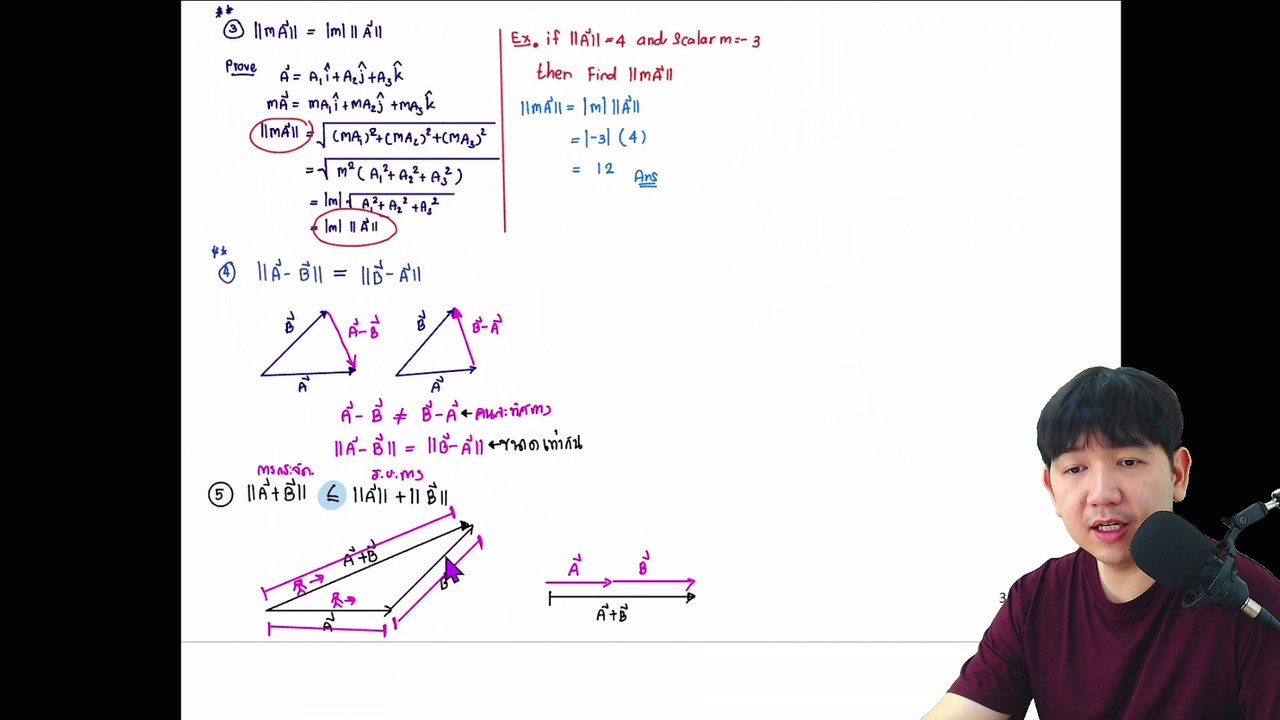 **
③ ||mA⃗|| = |m| ||A⃗||
Prove
A⃗ = A₁î + A₂ĵ + A₃k̂
mA⃗ = mA₁î + mA₂ĵ + mA₃k̂
||mA⃗|| = √((mA₁)² + (mA₂)² + (mA₃)²)
= √(m²(A₁² + A₂² + A₃²))
= |m| √(A₁² + A₂² + A₃²)
= |m| ||A⃗||
Ex. if ||A⃗|| = 4 and Scalar m = -3
then Find ||mA⃗||
||mA⃗|| = |m| ||A⃗||
= |-3| (4)
= 12 Ans
**
④ ||A⃗ - B⃗|| = ||B⃗ - A⃗||
B⃗ A⃗ - B⃗ B⃗ B⃗ - A⃗
A⃗ A⃗
A⃗ - B⃗ ≠ B⃗ - A⃗ ← คนละทิศทาง
||A⃗ - B⃗|| = ||B⃗ - A⃗|| ← ขนาดเท่ากัน
การกระจัด ร.ย.ทาง
⑤ ||A⃗ + B⃗|| ≤ ||A⃗|| + ||B⃗||
A⃗ + B⃗ A⃗ B⃗
B
A⃗ A⃗ + B⃗
3